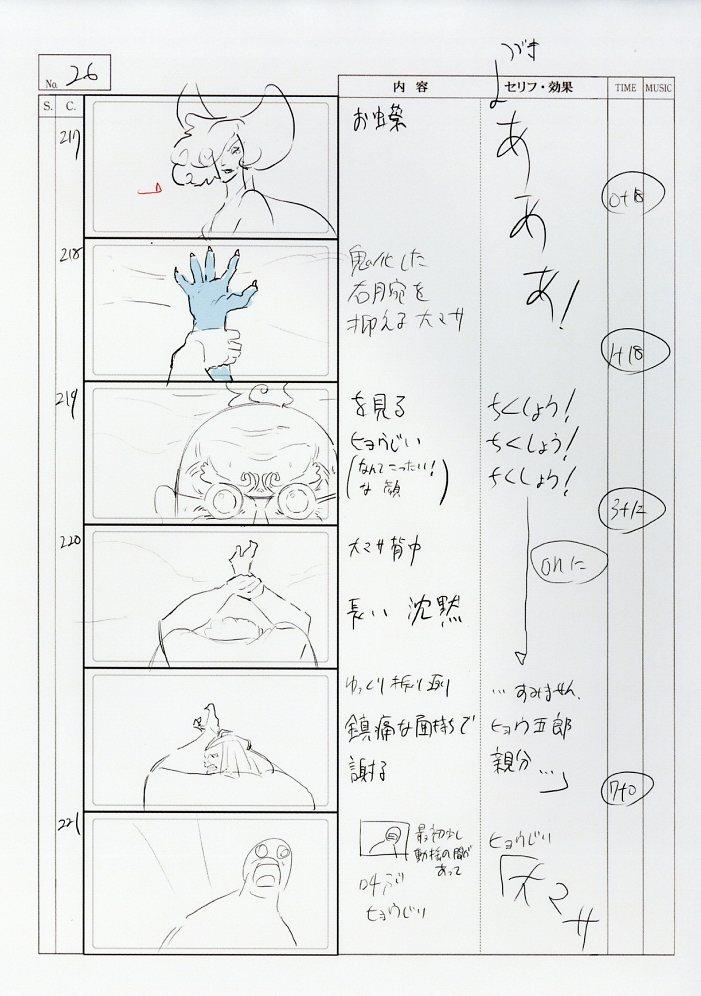 No. 26
つづき
S. C. 内容 セリフ・効果 TIME MUSIC
217
お虫菜
あああ!
0+18
218
鬼化した
右腕を
抑える大マサ
1+18
219
を見る
ヒョウじい
(なんてこったい!
な顔)
ちくしょう!
ちくしょう!
ちくしょう!
3+12
220
大マサ背中
長い 沈黙
onに
ゆっくり振り返り
鎮痛な面持ちで
謝する
…すみません
ヒョウ五郎
親分…」
7+0
221
最初少し
動揺の間が
あって
叫ぶ
ヒョウじい
ヒョウじい
「大マサ